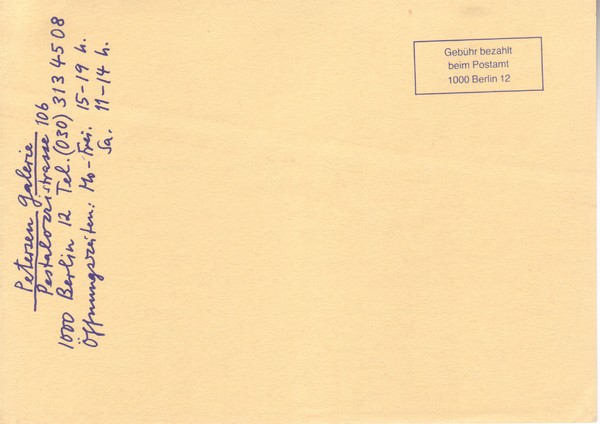 Petersen Galerie
Pestalozzistrasse 106
1000 Berlin 12 Tel. (030) 313 45 08
Öffnungszeiten: Mo-Frei. 15-19 h.
Sa. 11-14 h.
Gebühr bezahlt
beim Postamt
1000 Berlin 12